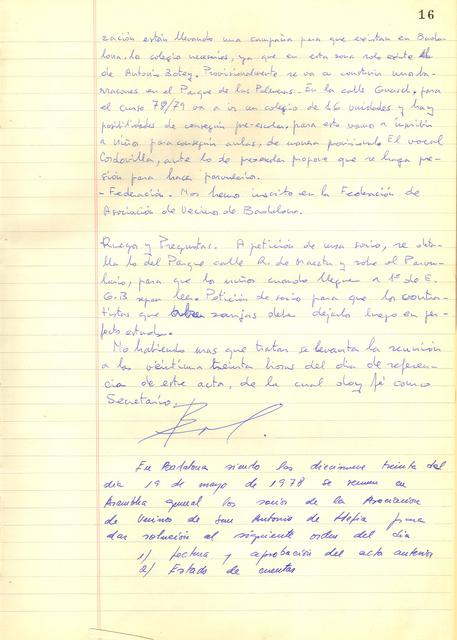 16
zación están llevando una campaña para que existan en Bada-
lona, los colegios necesarios, ya que en esta zona solo existe el
de Antonio Botey. Provisionalmente se va a construir unos ba-
rracones en el Parque de las Palmeras. En la calle Guasch, para
el curso 78/79 va a ir un colegio de 16 unidades y hay
posibilidades de conseguir pre-escolar, para esto vamos a inscribir
a niños para conseguir aulas, de manera provisional. El vocal
Cordovilla, ante lo de preescolar propone que se haga pre-
sión para hacer parvularios.
- Federación. Nos hemos inscrito en la Federación de
Asociación de Vecinos de Badalona.
Ruegos y Preguntas. A petición de una socia, se deta-
lla lo del Parque calle R. de Maeztu y sobre el Parvu-
lario, para que los niños cuando lleguen a 1º de E.
G.B sepan leer. Petición de socio para que los contra-
tistas que abren zanjas deben dejarlo luego en per-
fecto estado.
No habiendo mas que tratar se levanta la reunión
a las veintiuna treinta horas del día de referen-
cia de este acta, de la cual doy fé como
Secretario.
En Badalona siendo las diecinueve treinta del
día 19 de mayo de 1978 se reunen en
Asamblea general los socios de la Asociacion
de Vecinos de San Antonio de Llefia para
dar solución al siguiente orden del día
1) Lectura y aprobación del acta anterior
2) Estado de cuentas